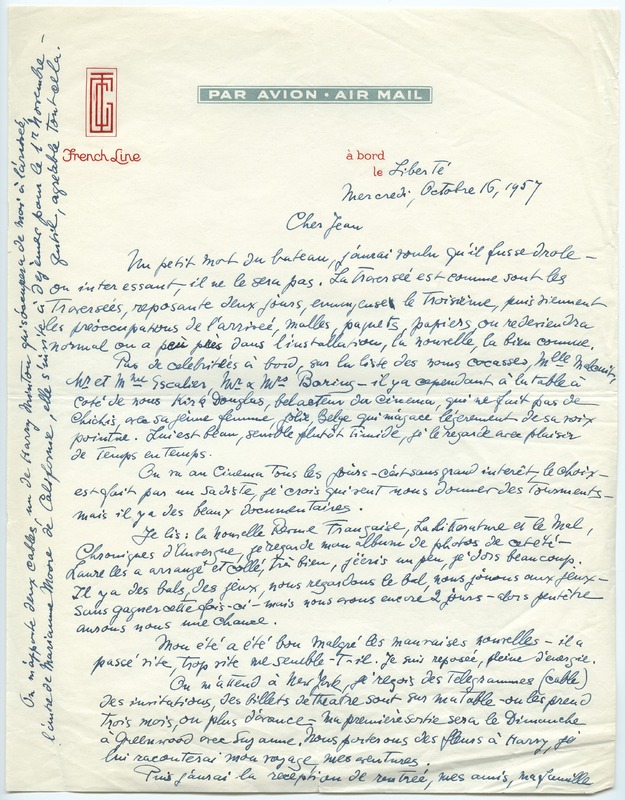 PAR AVION • AIR MAIL
French Line
à bord
le Liberté
Mercredi, Octobre 16, 1957
Cher Jean
Un petit mot du bateau, j'aurai voulu qu'il fusse drole –
ou interessant, il ne le sera pas. La Traversée est comme sont les
Traversées, reposante deux jours, ennuyeuse le Troisième, puis viennent
les préoccupations de l'arrivée, malles, paquets, papiers, on redeviendra
normal ou a peu près dans l'installation, la nouvelle, la bien comme.
Pas de celebritées à bord, sur la liste des noms cocasses, Mlle
Mr et Mme Escalier, Mr & Mrs Boring – il y a cependant à la table à
coté de nous Kirk Douglas, bel acteur du Cinema qui ne fait pas de
Chichis, avec sa jeune femme, jolie Belge qui m'agace légerement de sa voix
pointue. Lui est beau, semble plutôt timide, je le regarde avec plaisir
de Temps en Temps.
On va au Cinema Tous les jours – c'est sans grand interêt, le choix
est fait par un Sadiste, je crois qui veut nous donner des Tourments –
mais il y a des beaux documentaires.
Je lis : la Nouvelle Revue Française, La litterature et le Mal,
Chroniques d'Auvergne, je regarde mon album de photos de cet été –
Laure les a arrangé et collé, très bien, j'écris un peu, je dors beaucoup.
Il y a des bals, des jeux, nous regardons le bal, nous jouons aux jeux –
sans gagner cette fois-ci – mais nous avons encore 2 jours – alors peut être
aurons nous une Chance.
Mon été a été bon malgré les mauvaises nouvelles – il a
passé vite, trop vite me semble-t-il. Je suis reposée, pleine d'énergie.
On m'attend à New York, je reçois des Telegrammes (cable)
des invitations, des billets de theatre sont sur ma table – on les prend
trois mois, ou plus d'avance – ma première sortie sera le Dimanche
à Greenwood avec Suzanne. Nous porterons des fleurs à Harry, je
lui raconterai mon voyage, mes aventures.
Puis j'aurai la réception de rentrée, mes amis, ma famille
On m'apporte deux cables, un de Harry Minton qui s'occupera de moi à l'arrivée,
l'autre de Marianne Moore de Californie, elle m'invite à déjeuner pour le 1er Novembre –
gentil, agréable Tout cela.